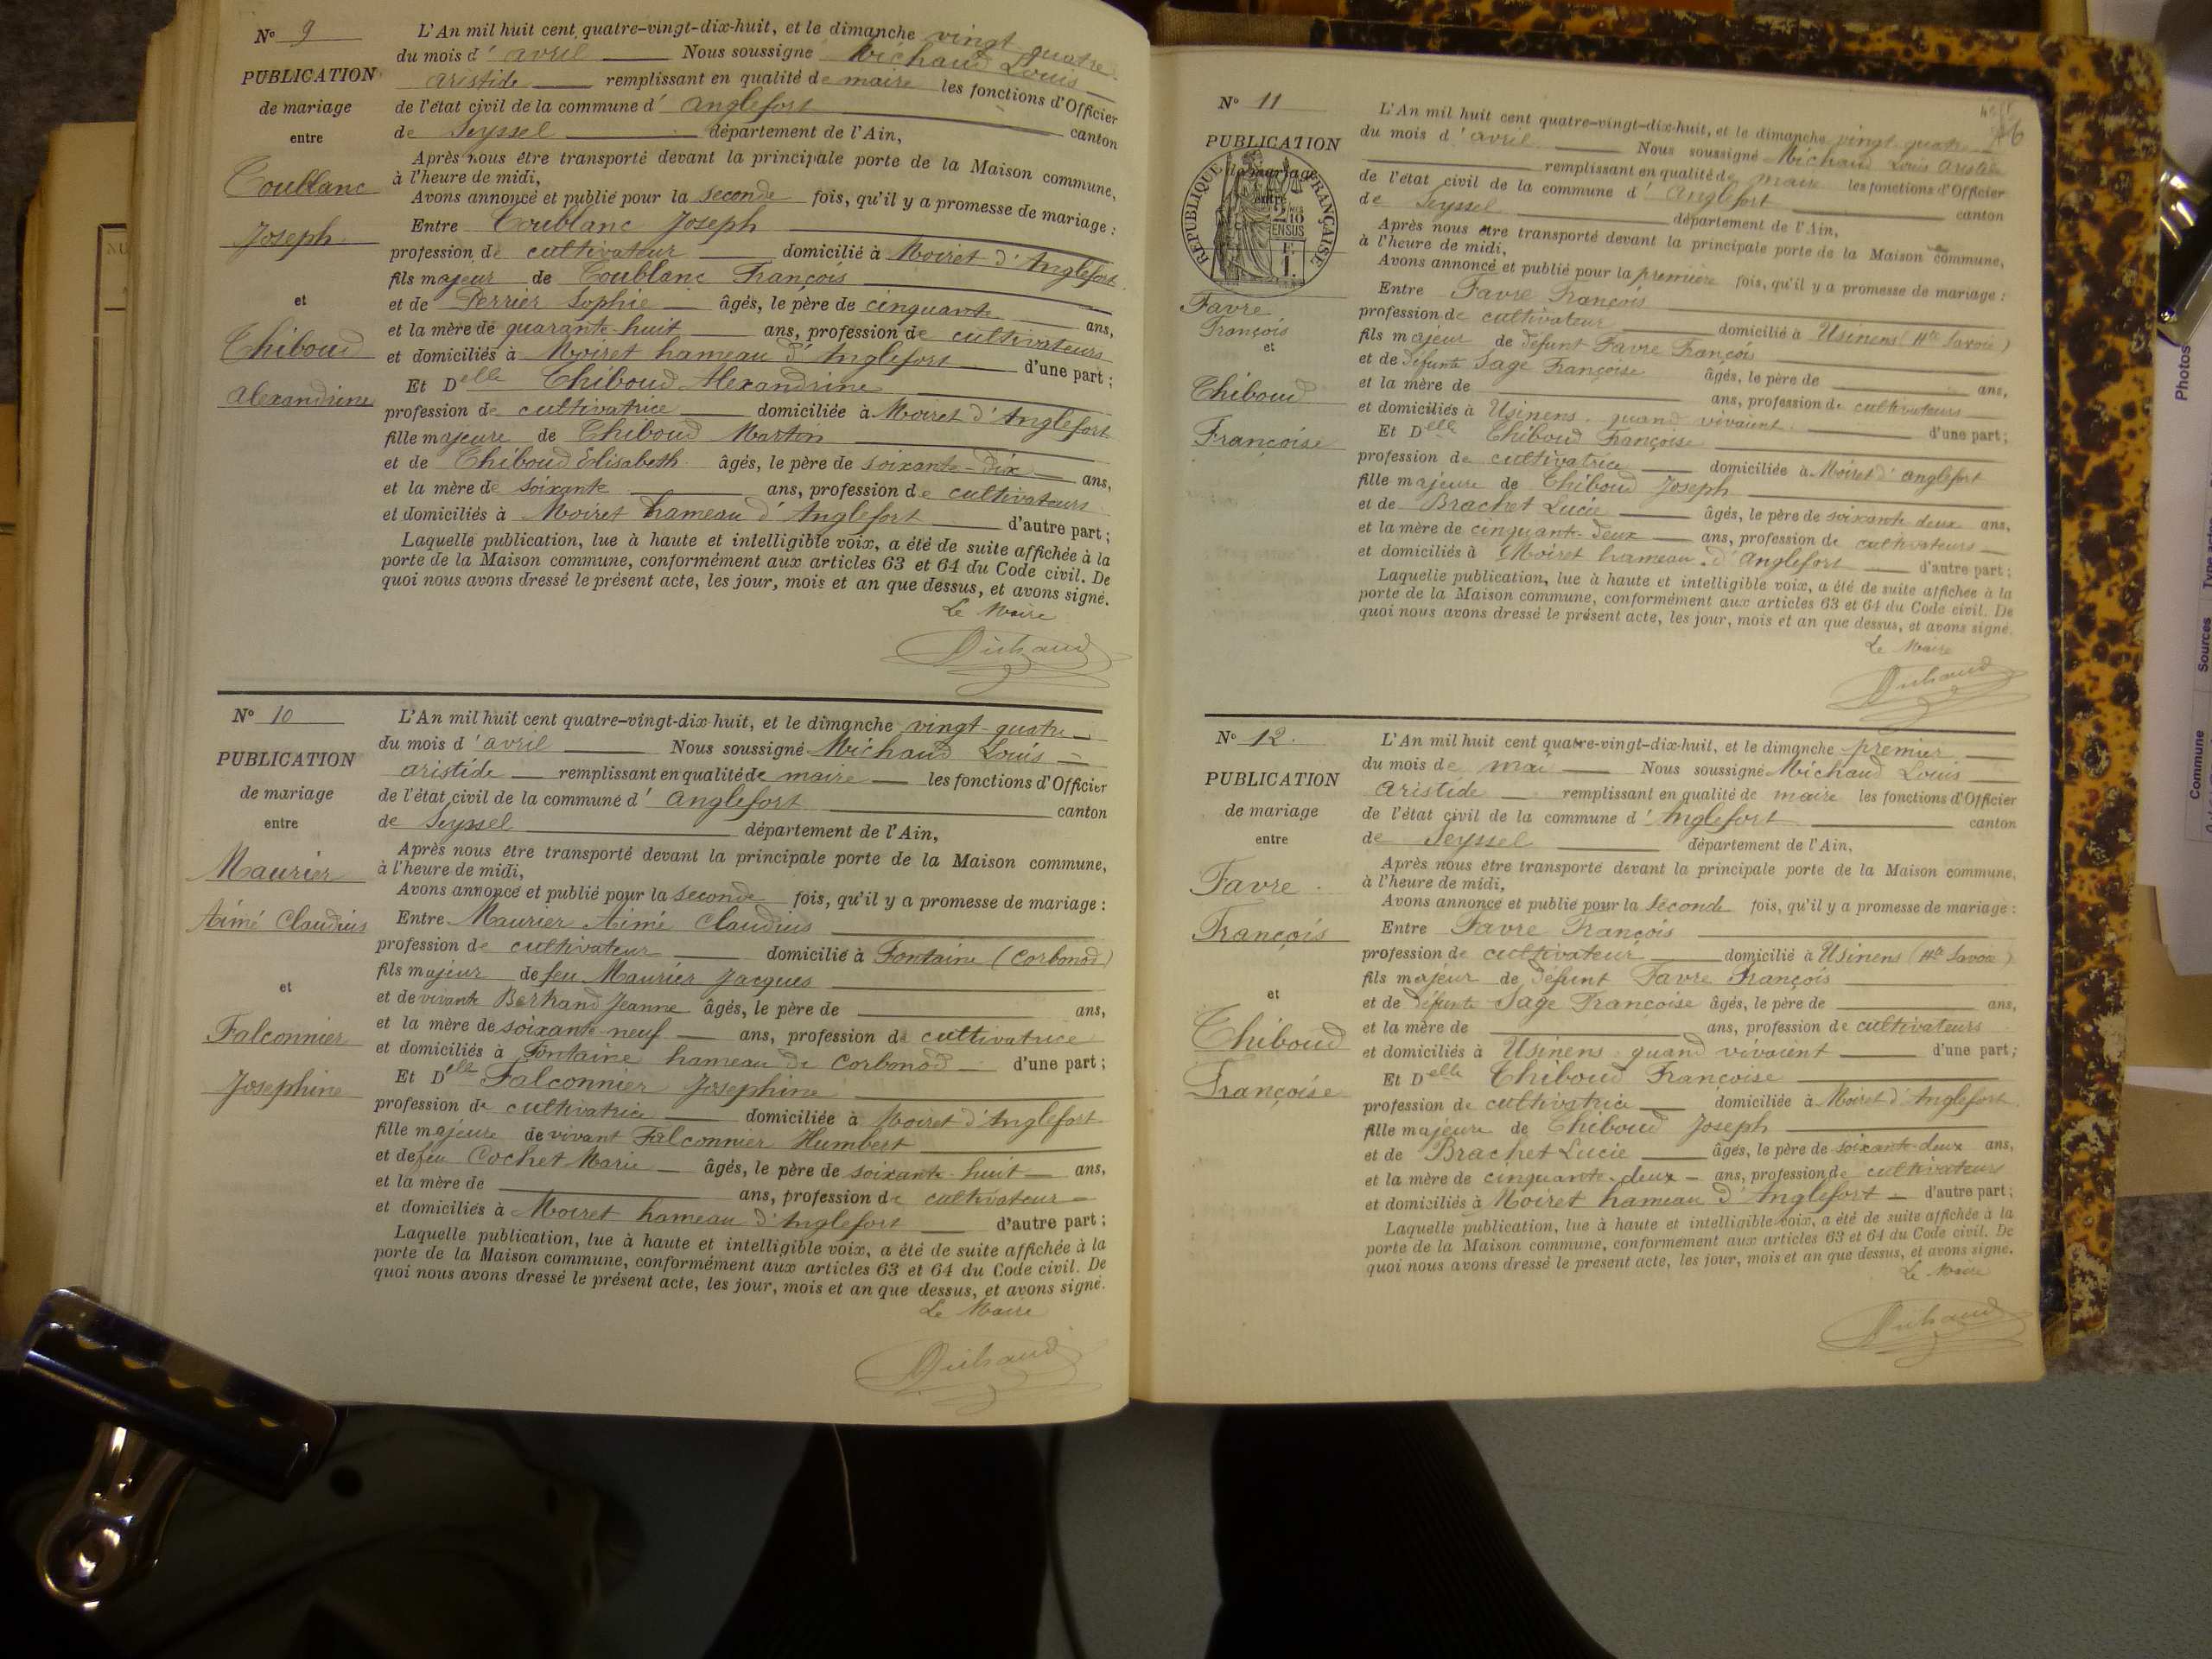 N° 9
PUBLICATION
de mariage
entre
Coublanc
Joseph
et
Thiboud
Alexandrine
L'An mil huit cent quatre-vingt-dix-huit, et le dimanche vingt quatre
du mois d' avril Nous soussigné Michaud Louis
aristide remplissant en qualité de maire les fonctions d'Officier
de l'état civil de la commune d' anglefort canton
de Seyssel département de l'Ain,
Après nous être transporté devant la principale porte de la Maison commune,
à l'heure de midi,
Avons annoncé et publié pour la seconde fois, qu'il y a promesse de mariage :
Entre Coublanc Joseph
profession de cultivateur domicilié à Moiret d'Anglefort
fils majeur de Coublanc François
et de Perrier Sophie âgés, le père de cinquante ans,
et la mère de quarante-huit ans, profession de cultivateurs
et domiciliés à Moiret hameau d'Anglefort d'une part ;
Et Delle Thiboud Alexandrine
profession de cultivatrice domiciliée à Moiret d'Anglefort
fille majeure de Thiboud Martin
et de Thiboud Elisabeth âgés, le père de soixante-dix ans,
et la mère de soixante ans, profession de cultivateurs
et domiciliés à Moiret hameau d'Anglefort d'autre part ;
Laquelle publication, lue à haute et intelligible voix, a été de suite affichée à la
porte de la Maison commune, conformément aux articles 63 et 64 du Code civil. De
quoi nous avons dressé le présent acte, les jour, mois et an que dessus, et avons signé.
Le Maire
Michaud
N° 10
PUBLICATION
de mariage
entre
Maurier
Aimé Claudius
et
Falconnier
Josephine
L'An mil huit cent quatre-vingt-dix-huit, et le dimanche vingt-quatre
du mois d'avril Nous soussigné Michaud Louis
aristide remplissant en qualité de maire les fonctions d'Officier
de l'état civil de la commune d' anglefort canton
de Seyssel département de l'Ain,
Après nous être transporté devant la principale porte de la Maison commune,
à l'heure de midi,
Avons annoncé et publié pour la seconde fois, qu'il y a promesse de mariage :
Entre Maurier Aimé Claudius
profession de cultivateur domicilié à Fontaine (Corbonod)
fils majeur de feu Maurier Jacques
et de vivante Bertrand Jeanne âgés, le père de ans,
et la mère de soixante-neuf ans, profession de cultivatrice
et domiciliés à Fontaine hameau de Corbonod d'une part ;
Et Delle Falconnier Josephine
profession de cultivatrice domiciliée à Moiret d'Anglefort
fille majeure de vivant Falconnier Humbert
et de feu Cochet Marie âgés, le père de soixante-huit ans,
et la mère de ans, profession de cultivateur
et domiciliés à Moiret hameau d'Anglefort d'autre part ;
Laquelle publication, lue à haute et intelligible voix, a été de suite affichée à la
porte de la Maison commune, conformément aux articles 63 et 64 du Code civil. De
quoi nous avons dressé le présent acte, les jour, mois et an que dessus, et avons signé.
Le Maire
Michaud
N° 11
PUBLICATION
de mariage
entre
RÉPUBLIQUE FRANÇAISE
Favre
François
et
Thiboud
Françoise
L'An mil huit cent quatre-vingt-dix-huit, et le dimanche vingt-quatre
du mois d'avril Nous soussigné Michaud Louis Aristide
remplissant en qualité de maire les fonctions d'Officier
de l'état civil de la commune d' Anglefort canton
de Seyssel département de l'Ain,
Après nous être transporté devant la principale porte de la Maison commune,
à l'heure de midi,
Avons annoncé et publié pour la première fois, qu'il y a promesse de mariage :
Entre Favre François
profession de cultivateur domicilié à Usinens (Hte Savoie)
fils majeur de défunt Favre François
et de défunte Sage Françoise âgés, le père de ans,
et la mère de ans, profession de cultivateurs
et domiciliés à Usinens quand vivaient d'une part ;
Et Delle Thiboud Françoise
profession de cultivatrice domiciliée à Moiret d'anglefort
fille majeure de Thiboud Joseph
et de Brachet Lucie âgés, le père de soixante deux ans,
et la mère de cinquante-deux ans, profession de cultivateurs
et domiciliés à Moiret hameau d'Anglefort d'autre part ;
Laquelle publication, lue à haute et intelligible voix, a été de suite affichée à la
porte de la Maison commune, conformément aux articles 63 et 64 du Code civil. De
quoi nous avons dressé le présent acte, les jour, mois et an que dessus, et avons signé.
Le Maire
Michaud
N° 12.
PUBLICATION
de mariage
entre
Favre
François
et
Thiboud
Françoise
L'An mil huit cent quatre-vingt-dix-huit, et le dimanche premier
du mois de mai Nous soussigné Michaud Louis
aristide remplissant en qualité de maire les fonctions d'Officier
de l'état civil de la commune d' Anglefort canton
de Seyssel département de l'Ain,
Après nous être transporté devant la principale porte de la Maison commune,
à l'heure de midi,
Avons annoncé et publié pour la seconde fois, qu'il y a promesse de mariage :
Entre Favre François
profession de cultivateur domicilié à Usinens (Hte Savoie)
fils majeur de défunt Favre François
et de défunte Sage Françoise âgés, le père de ans,
et la mère de ans, profession de cultivateurs
et domiciliés à Usinens quand vivaient d'une part ;
Et Delle Thiboud Françoise
profession de cultivatrice domiciliée à Moiret d'Anglefort
fille majeure de Thiboud Joseph
et de Brachet Lucie âgés, le père de soixante-deux ans,
et la mère de cinquante-deux ans, profession de cultivateurs
et domiciliés à Moiret hameau d'Anglefort d'autre part ;
Laquelle publication, lue à haute et intelligible voix, a été de suite affichée à la
porte de la Maison commune, conformément aux articles 63 et 64 du Code civil. De
quoi nous avons dressé le présent acte, les jour, mois et an que dessus, et avons signé.
Le Maire
Michaud
Photos
Sources
Commune